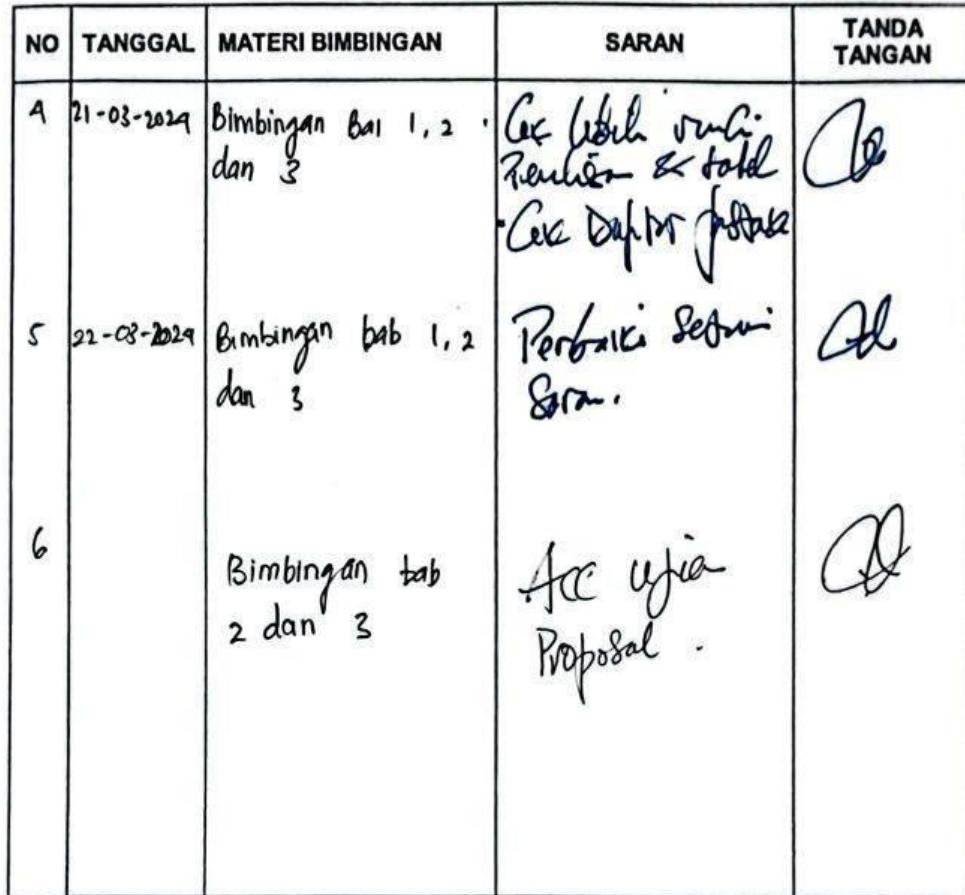 NO TANGGAL MATERI BIMBINGAN SARAN TANDA TANGAN
4 21-03-2024 Bimbingan Bab 1, 2 dan 3
Cek lebih rinci
Penulisan & tabel
Cek Daftar Pustaka
5 22-03-2024 Bimbingan bab 1, 2 dan 3
Perbaiki Sesuai
Saran.
6 Bimbingan bab
2 dan 3
Acc ujian
Proposal.